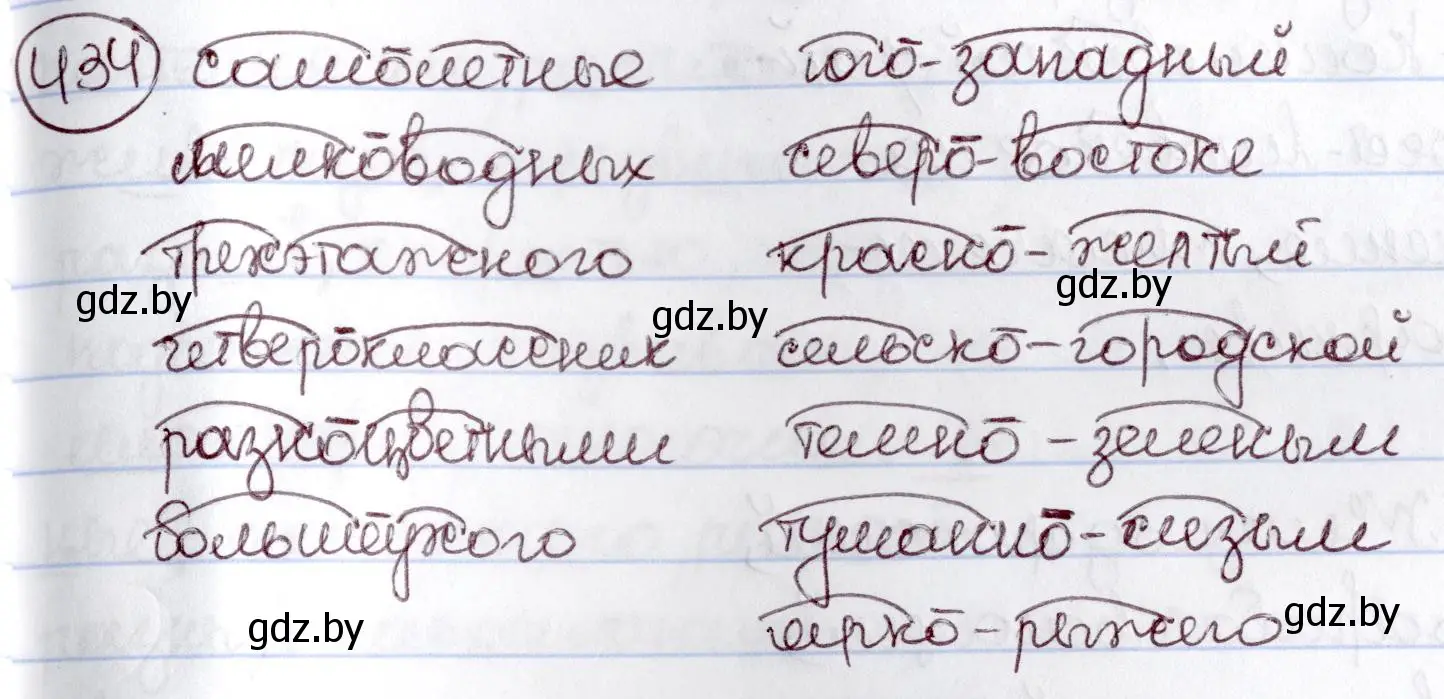 434 самолетные
мелководных
трехэтажного
gdz.by
четвероклассник
разноцветными
большеухого
юго-западный
северо-востоке
красно-желтый
gdz.by
gdz.by
сельско-городской
темно-зеленым
туманно-сизым
ярко-рыжего
gdz.by
gdz.by